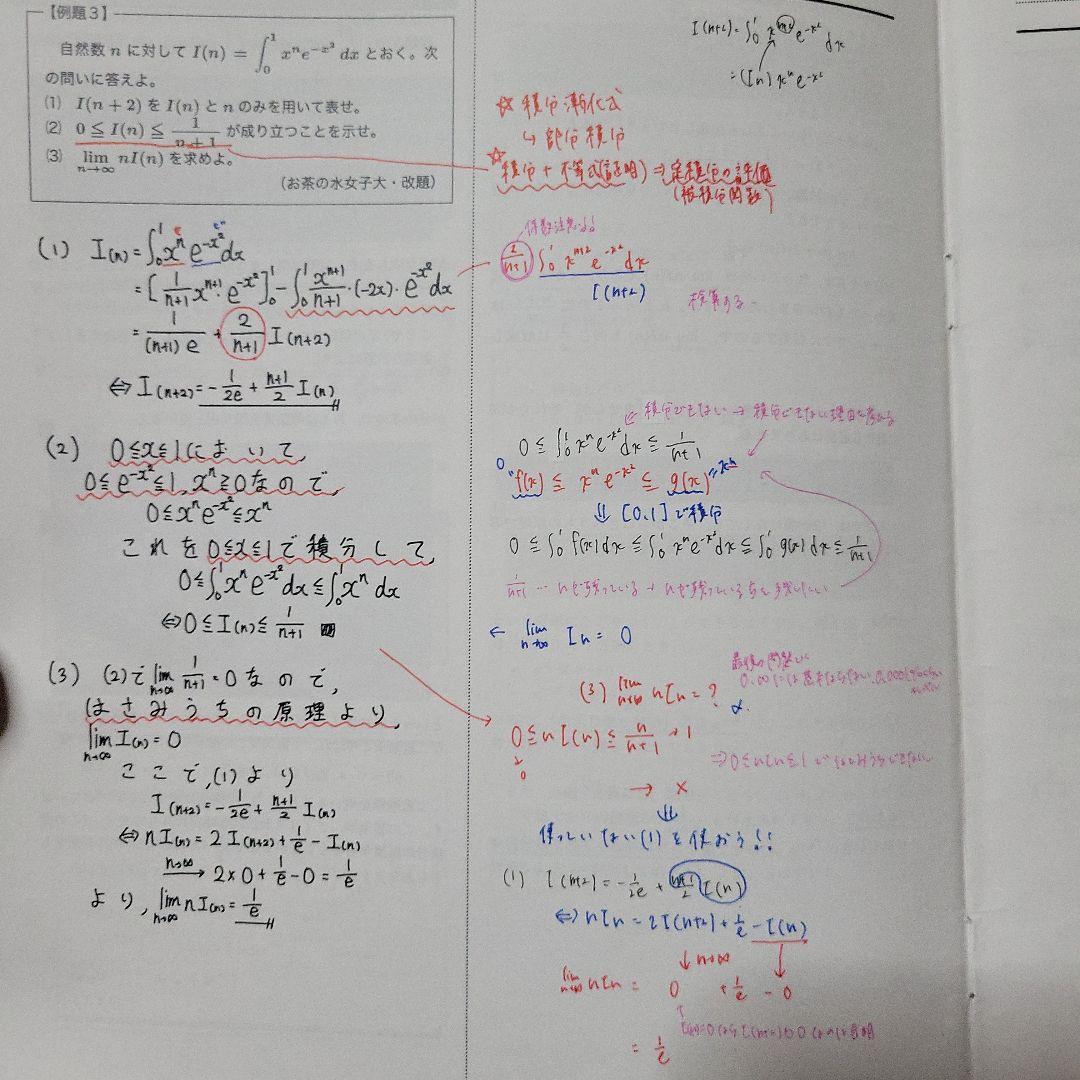 【例題3】
自然数 n に対して I(n) = ∫₀¹ xⁿe^{-x²} dx とおく。次
の問いに答えよ。
(1) I(n+2) を I(n) と n のみを用いて表せ。
(2) 0 ≦ I(n) ≦ 1/(n+1) が成り立つことを示せ。
(3) lim_{n→∞} nI(n) を求めよ。
(お茶の水女子大・改題)
(1) I(n) = ∫₀¹ xⁿ e^{-x²} dx
= [1/(n+1) x^{n+1}・e^{-x²}]₀¹ - ∫₀¹ x^{n+1}/(n+1)・(-2x)・e^{-x²} dx
= 1/((n+1)e) + 2/(n+1) I(n+2)
⇔ I(n+2) = -1/(2e) + (n+1)/2 I(n)
(2) 0≦x≦1において,
0≦e^{-x²}≦1, xⁿ≧0なので,
0≦xⁿe^{-x²}≦xⁿ
これを0≦x≦1で積分して,
0≦∫₀¹ xⁿe^{-x²}dx≦∫₀¹ xⁿ dx
⇔0≦I(n)≦1/(n+1)
(3) (2)で lim_{n→∞} 1/(n+1) = 0 なので,
はさみうちの原理より,
lim_{n→∞} I(n) = 0
ここで,(1)より
I(n+2) = -1/(2e) + (n+1)/2 I(n)
⇔ nI(n) = 2I(n+2) + 1/e - I(n)
n→∞ → 2×0 + 1/e - 0 = 1/e
より, lim_{n→∞} nI(n) = 1/e
I(n+2) = ∫₀¹ x^{n+2} e^{-x²} dx
= (In) xⁿ e^{-x²}
☆ 積分漸化式
↳ 部分積分
☆ 積分 + 不等式(証明) ⇒ 定積分の評価
(被積分関数)
係数注意
2/(n+1) ∫₀¹ x^{n+2} e^{-x²} dx
I(n+2)
検算する
積分できない → 積分できない理由を考える
0 ≦ ∫₀¹ xⁿe^{-x²}dx ≦ 1/(n+1)
0 "f(x) ≦ xⁿ e^{-x²} ≦ g(x)" = xⁿ
⇓ [0,1]で積分
0 ≦ ∫₀¹ f(x)dx ≦ ∫₀¹ xⁿe^{-x²}dx ≦ ∫₀¹ g(x)dx ≦ 1/(n+1)
1/(n+1) … nが残っている → nが残っている方を残したい
← lim_{n→∞} In = 0
(3) lim_{n→∞} nIn = ?
0 ≦ nI(n) ≦ n/(n+1) → 1
0
→ ×
⇓
使っていない(1)を使おう!!
(1) I(n+2) = -1/(2e) + (n+1)/2 I(n)
⇔ nIn = 2I(n+2) + 1/e - I(n)
↓ n→∞ ↓
lim_{n→∞} nIn = 0 + 1/e - 0
= 1/e